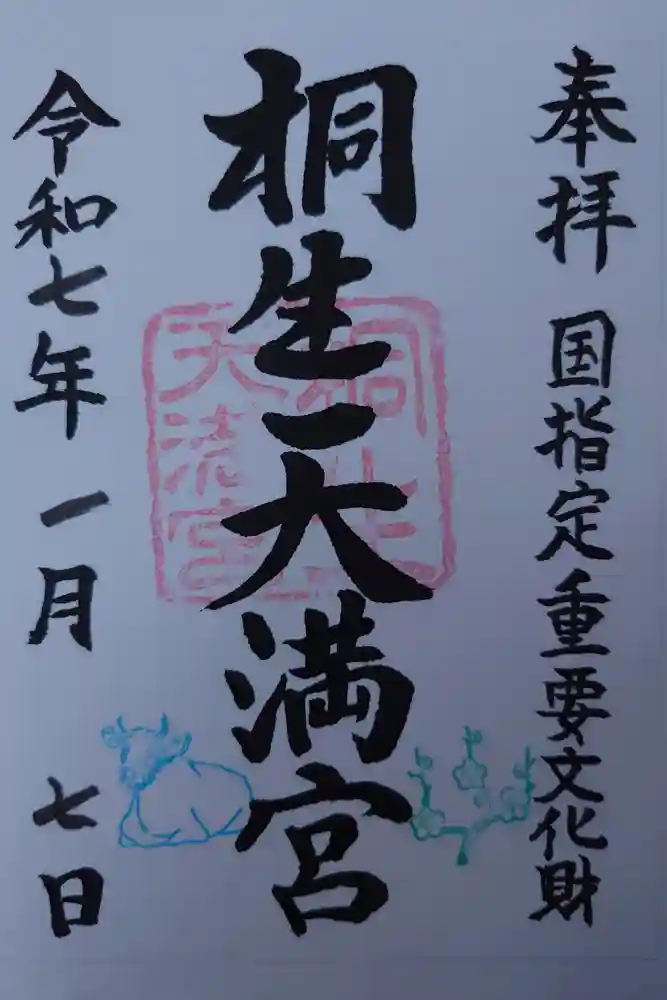 奉拝 国指定重要文化財
桐生天満宮
桐生
天満宮
令和七年 一月 七日